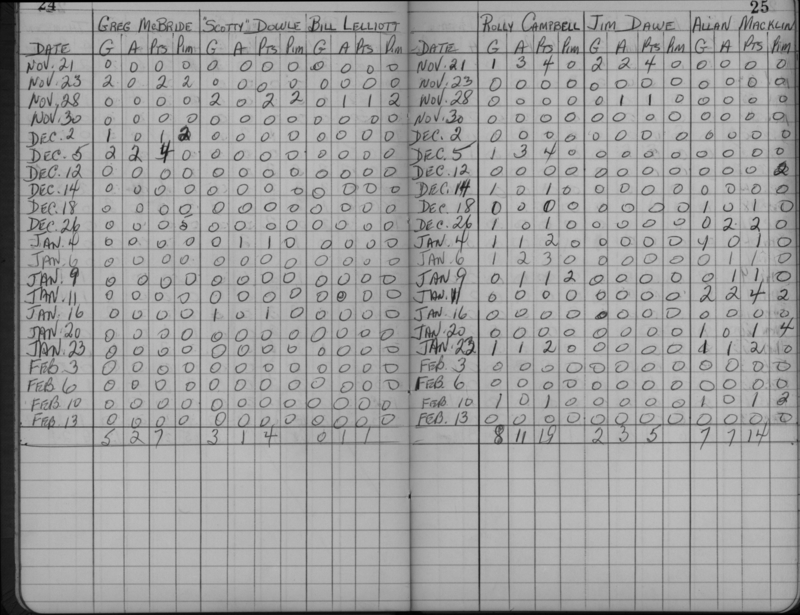 24
GREG McBRIDE "SCOTTY" DOWLE BILL LELLIOTT
DATE G A Pts Pim G A Pts Pim G A Pts Pim
NOV. 21 0 0 0 0 0 0 0 0 0 0 0 0
NOV. 23 2 0 2 2 0 0 0 0 0 0 0 0
NOV. 28 0 0 0 0 2 0 2 2 0 1 1 2
NOV. 30 0 0 0 0 0 0 0 0 0 0 0 0
DEC. 2 1 0 1 2 0 0 0 0 0 0 0 0
DEC. 5 2 2 4 0 0 0 0 0 0 0 0 0
DEC. 12 0 0 0 0 0 0 0 0 0 0 0 0
DEC. 14 0 0 0 0 0 0 0 0 0 0 0 0
DEC. 18 0 0 0 0 0 0 0 0 0 0 0 0
DEC. 26 0 0 0 0 0 0 0 0 0 0 0
JAN. 4 0 0 0 0 0 1 1 0 0 0 0 0
JAN. 6 0 0 0 0 0 0 0 0 0 0 0 0
JAN. 9 0 0 0 0 0 0 0 0 0 0 0 0
JAN. 11 0 0 0 0 0 0 0 0 0 0 0 0
JAN. 16 0 0 0 0 1 0 1 0 0 0 0 0
JAN. 20 0 0 0 0 0 0 0 0 0 0 0 0
JAN. 23 0 0 0 0 0 0 0 0 0 0 0 0
FEB. 3 0 0 0 0 0 0 0 0 0 0 0 0
FEB. 6 0 0 0 0 0 0 0 0 0 0 0 0
FEB 10 0 0 0 0 0 0 0 0 0 0 0 0
FEB. 13 0 0 0 0 0 0 0 0 0 0 0 0
5 2 7 3 1 4 0 1 1
25
ROLLY CAMPBELL JIM DAWE ALLAN MACKLIN
DATE G A Pts Pim G A Pts Pim G A Pts Pim
NOV. 21 1 3 4 0 2 2 4 0 0 0 0 0
NOV. 23 0 0 0 0 0 0 0 0 0 0 0 0
NOV. 28 0 0 0 0 0 1 1 0 0 0 0 0
NOV. 30 0 0 0 0 0 0 0 0 0 0 0 0
DEC. 2 0 0 0 0 0 0 0 0 0 0 0 0
DEC. 5 1 3 4 0 0 0 0 0 0 0 0 0
DEC. 12 0 0 0 0 0 0 0 0 0 0 0 2
DEC. 14 1 0 1 0 0 0 0 0 0 0 0 0
DEC. 18 0 0 0 0 0 0 0 0 1 0 1 0
DEC. 26 1 0 1 0 0 0 0 0 0 2 2 0
JAN. 4 1 1 2 0 0 0 0 0 1 0 1 0
JAN. 6 1 2 3 0 0 0 0 0 0 1 1 0
JAN. 9 0 1 1 2 0 0 0 0 0 1 1 0
JAN. 11 0 0 0 0 0 0 0 0 2 2 4 2
JAN. 16 0 0 0 0 0 0 0 0 0 0 0 0
JAN. 20 0 0 0 0 0 0 0 0 1 0 1 4
JAN. 23 1 1 2 0 0 0 0 0 1 1 2 0
FEB. 3 0 0 0 0 0 0 0 0 0 0 0 0
FEB. 6 0 0 0 0 0 0 0 0 0 0 0 0
FEB 10 1 0 1 0 0 0 0 0 1 0 1 2
FEB. 13 0 0 0 0 0 0 0 0 0 0 0 0
8 11 19 2 3 5 7 7 14